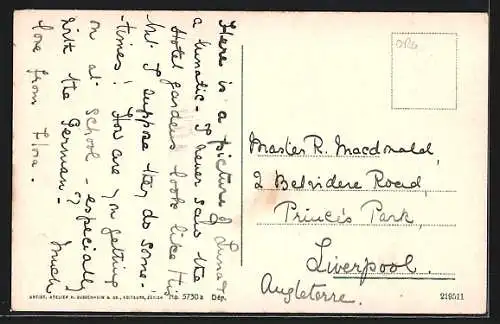 Here is a picture of Luna &
a lunatic - I never saw the
Hotel gardens look like this
but I suppose they do some-
times! How are you getting
on at School - especially
with the German - ?
Much
love from Flora.
Master R. Macdonald,
2 Belvidere Road,
Prince's Park,
Liverpool.
Angleterre.
ARTIST. ATELIER H. GUGGENHEIM & CO., EDITEURS, ZÜRICH No. 5730 a Dép.
219511